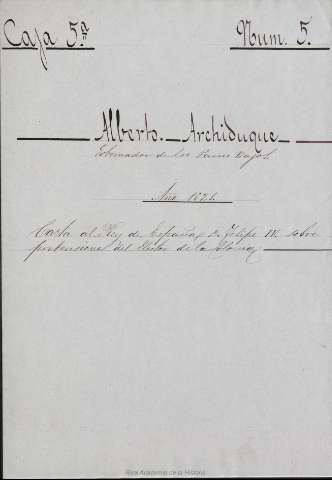 Caja 5ª Num. 5.
Alberto. Archiduque
Gobernador de los Paises Bajos.
Año
Carta al Rey de España, D. Felipe sobre
pretensiones del de la
Real Academia de la Historia